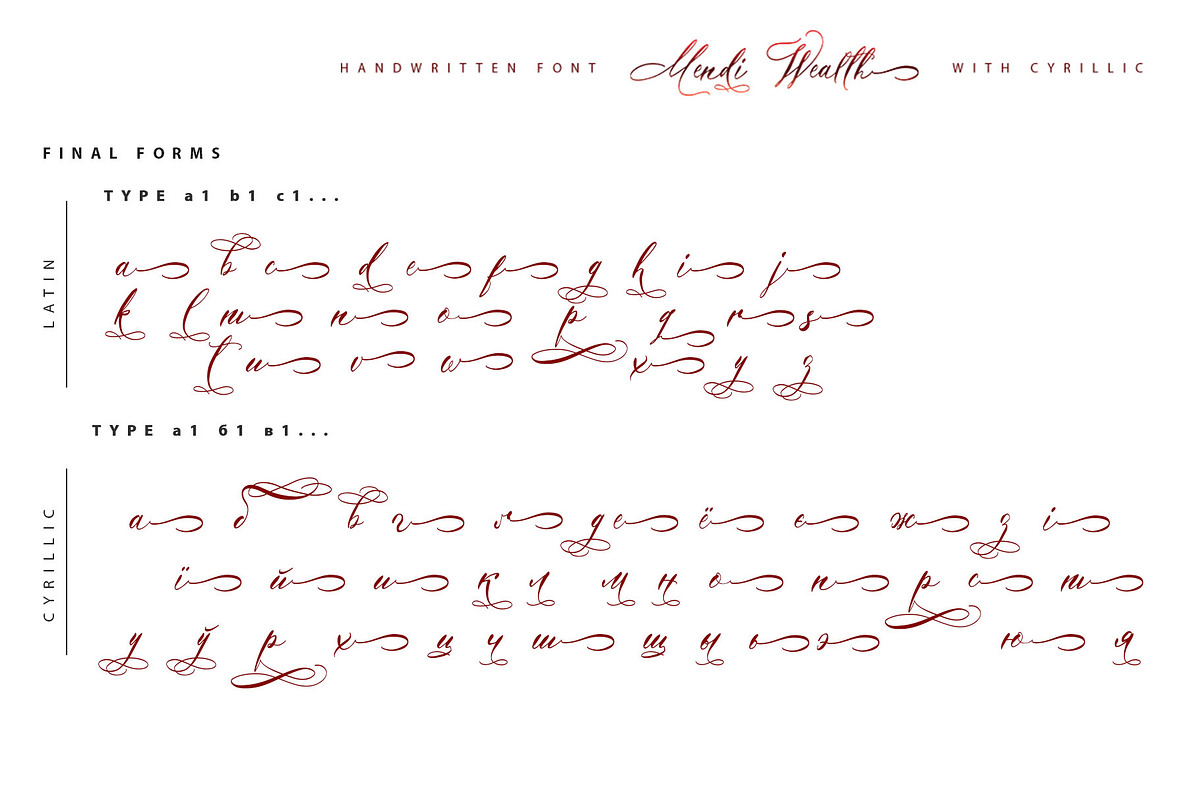 HANDWRITTEN FONT Mendi Wealth WITH CYRILLIC
FINAL FORMS
TYPE a1 b1 c1...
LATIN
a b c d e f g h i j
k l m n o p q r s
t u v w x y z
TYPE а1 б1 в1...
CYRILLIC
а б в г ґ д е ё є ж з і
ї й и к л м н о п р с т
у ў ф х ц ч ш щ ы ь э ю я